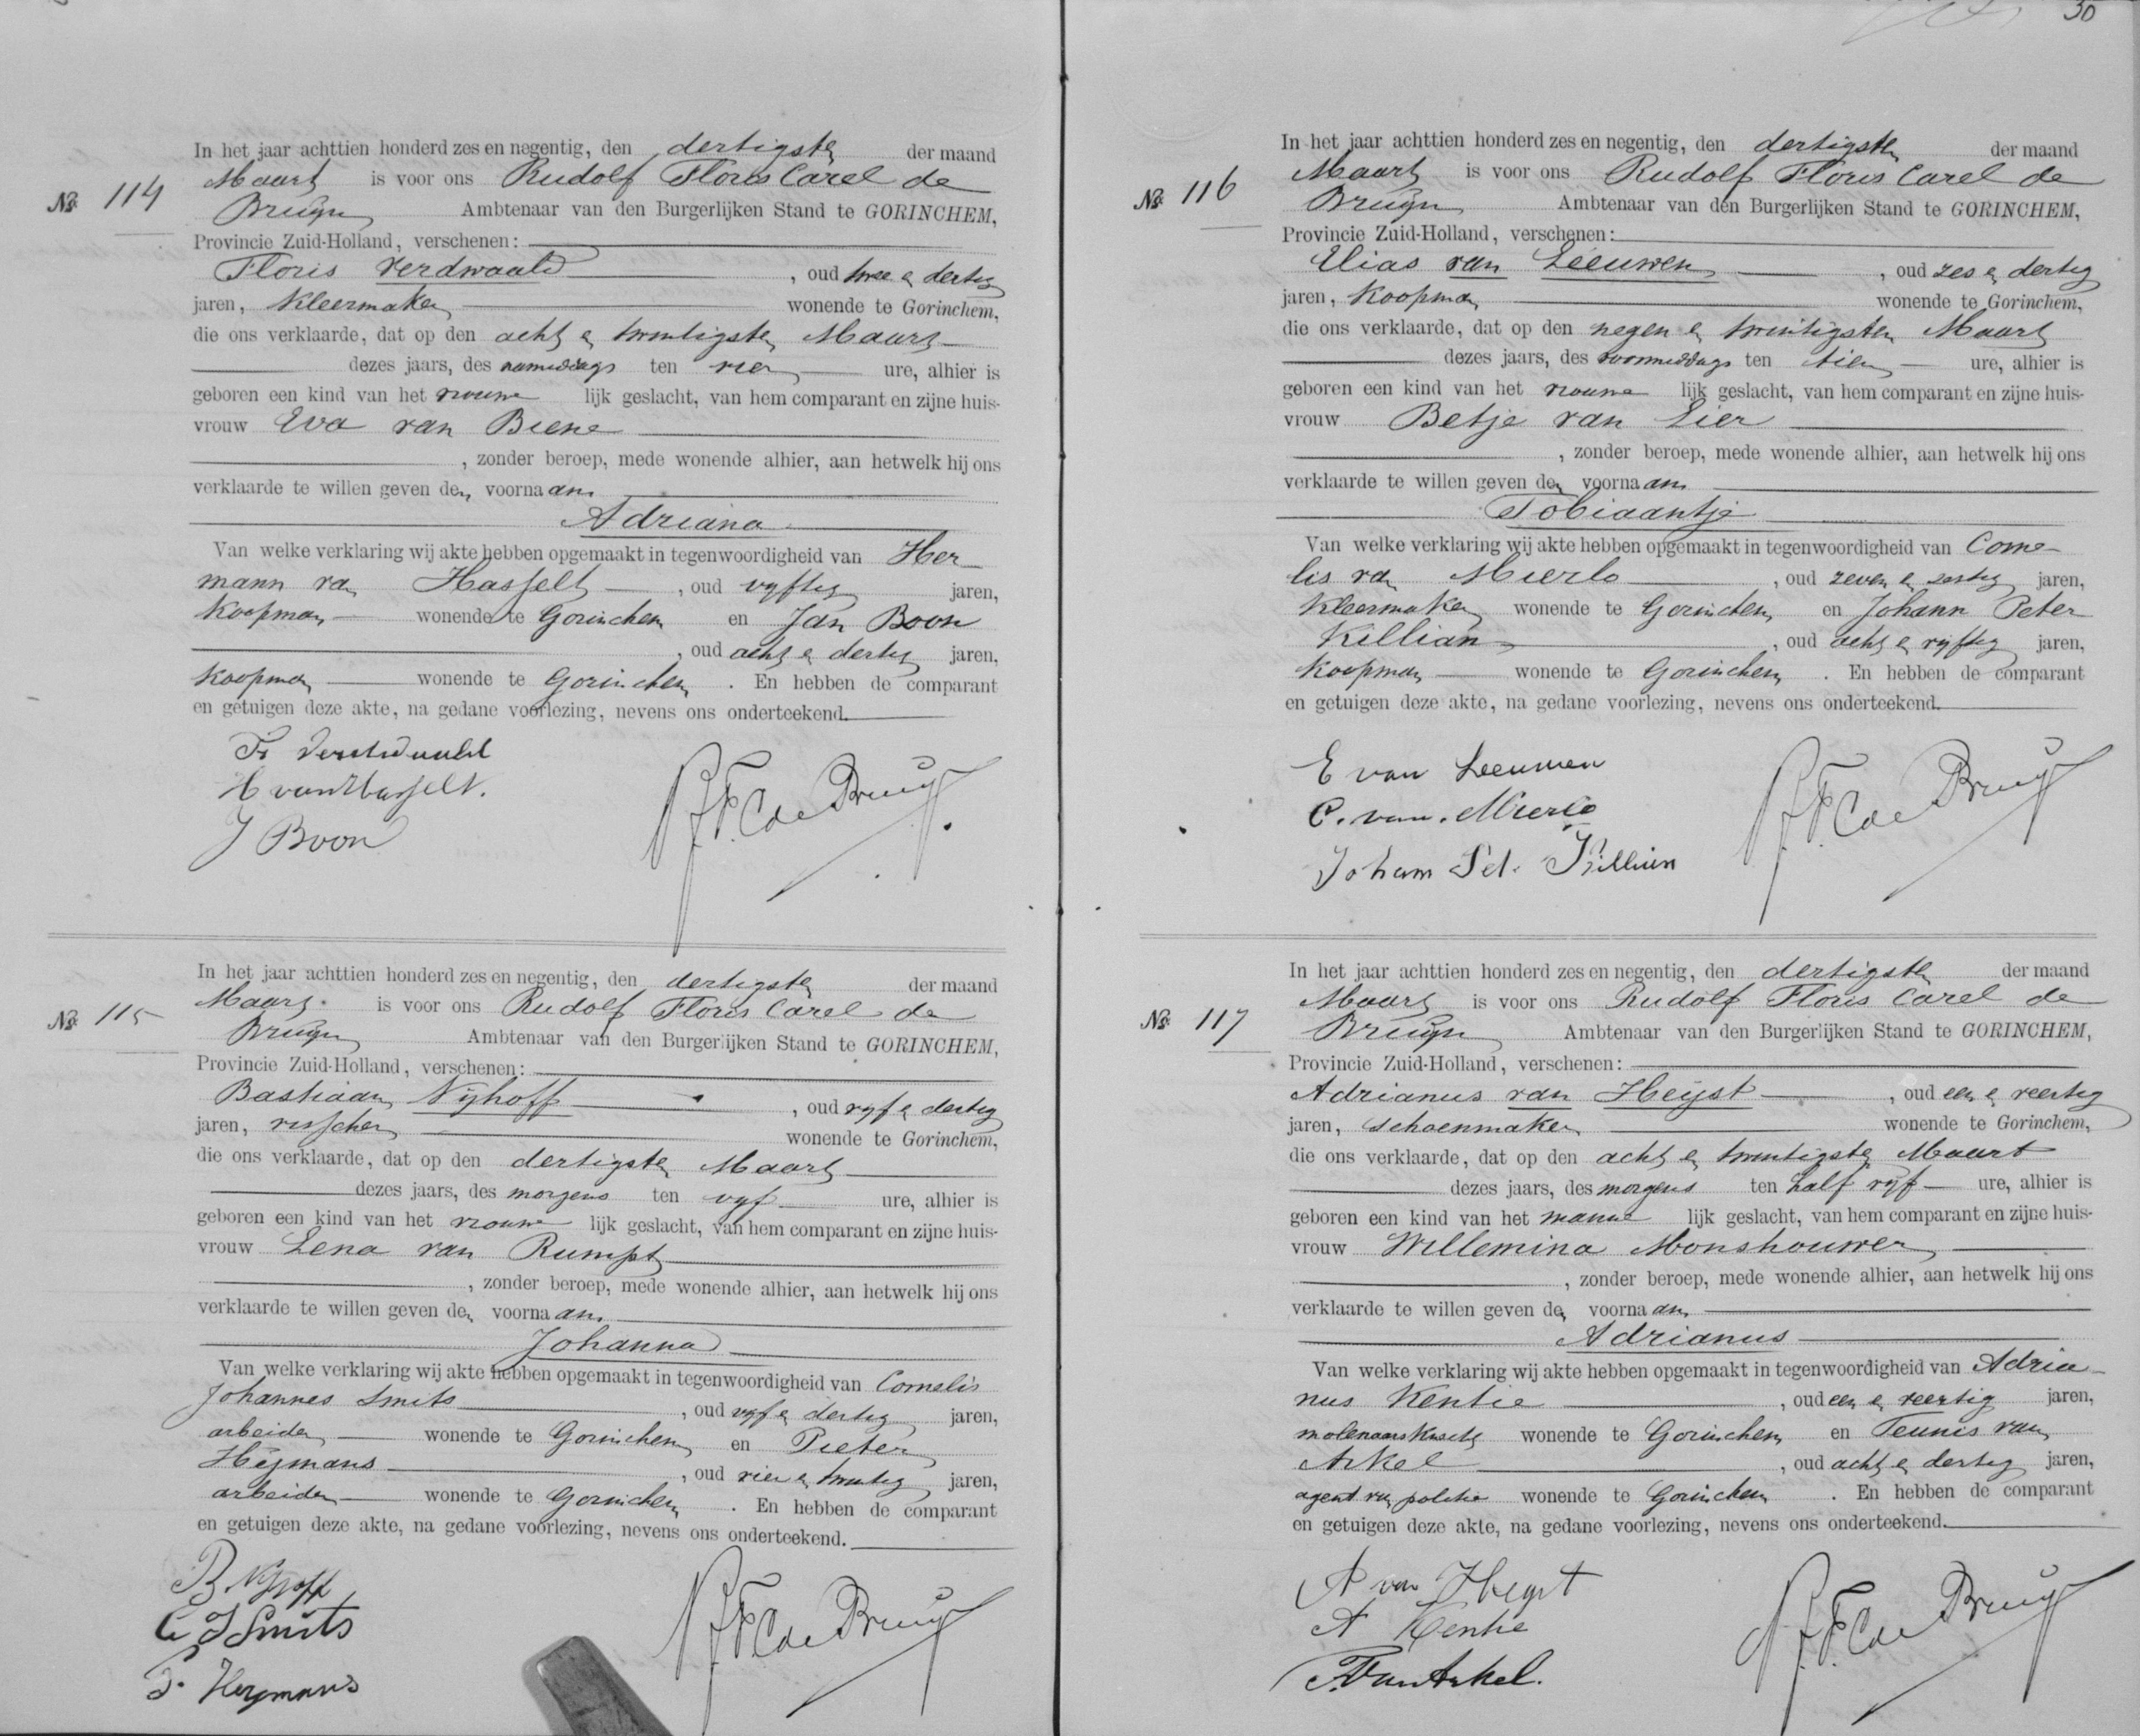 In het jaar achttien honderd zes en negentig, den dertigsten der maand
No. 114 Maart is voor ons Rudolf Floris Carel de
Bruijn Ambtenaar van den Burgerlijken Stand te GORINCHEM,
Provincie Zuid-Holland, verschenen:
Floris Verdwaald, oud twee en dertig
jaren, Kleermaker wonende te Gorinchem,
die ons verklaarde, dat op den acht en twintigsten Maart
dezes jaars, des namiddags ten vier ure, alhier is
geboren een kind van het vrouwelijk geslacht, van hem comparant en zijne huis-
vrouw Eva van Biene
, zonder beroep, mede wonende alhier, aan hetwelk hij ons
verklaarde te willen geven den voornaam
Adriana
Van welke verklaring wij akte hebben opgemaakt in tegenwoordigheid van Her-
mann van Hasselt, oud vijftig jaren,
Koopman wonende te Gorinchem en Jan Boon
, oud acht en dertig jaren,
Koopman wonende te Gorinchem. En hebben de comparant
en getuigen deze akte, na gedane voorlezing, nevens ons onderteekend.
Fs Verdwaald
H van Hasselt.
J Boon
RFC de Bruijn
In het jaar achttien honderd zes en negentig, den dertigsten der maand
No. 115 Maart is voor ons Rudolf Floris Carel de
Bruijn Ambtenaar van den Burgerlijken Stand te GORINCHEM,
Provincie Zuid-Holland, verschenen:
Bastiaan Nijhoff, oud vijf en dertig
jaren, visscher wonende te Gorinchem,
die ons verklaarde, dat op den dertigsten Maart
dezes jaars, des morgens ten vijf ure, alhier is
geboren een kind van het vrouwelijk geslacht, van hem comparant en zijne huis-
vrouw Lena van Rumpt
, zonder beroep, mede wonende alhier, aan hetwelk hij ons
verklaarde te willen geven den voornaam
Johanna
Van welke verklaring wij akte hebben opgemaakt in tegenwoordigheid van Cornelis
Johannes Smits, oud vijf en dertig jaren,
arbeider wonende te Gorinchem en Pieter
Heijmans, oud vier en twintig jaren,
arbeider wonende te Gorinchem. En hebben de comparant
en getuigen deze akte, na gedane voorlezing, nevens ons onderteekend.
B Nijhoff
C J Smits
P. Heymans
RFC de Bruijn
30
In het jaar achttien honderd zes en negentig, den dertigsten der maand
No. 116 Maart is voor ons Rudolf Floris Carel de
Bruijn Ambtenaar van den Burgerlijken Stand te GORINCHEM,
Provincie Zuid-Holland, verschenen:
Elias van Leeuwen, oud zes en dertig
jaren, Koopman wonende te Gorinchem,
die ons verklaarde, dat op den negen en twintigsten Maart
dezes jaars, des voormiddags ten tien ure, alhier is
geboren een kind van het vrouwelijk geslacht, van hem comparant en zijne huis-
vrouw Betje van Lier
, zonder beroep, mede wonende alhier, aan hetwelk hij ons
verklaarde te willen geven den voornaam
Tobiaantje
Van welke verklaring wij akte hebben opgemaakt in tegenwoordigheid van Corne-
lis van Mierlo, oud zeven en zestig jaren,
Kleermaker wonende te Gorinchem en Johann Peter
Killian, oud acht en vijftig jaren,
Koopman wonende te Gorinchem. En hebben de comparant
en getuigen deze akte, na gedane voorlezing, nevens ons onderteekend.
E van Leeuwen
C. van Mierlo
Johann Pet. Killian
RFC de Bruijn
In het jaar achttien honderd zes en negentig, den dertigsten der maand
No. 117 Maart is voor ons Rudolf Floris Carel de
Bruijn Ambtenaar van den Burgerlijken Stand te GORINCHEM,
Provincie Zuid-Holland, verschenen:
Adrianus van Heijst, oud een en veertig
jaren, schoenmaker wonende te Gorinchem,
die ons verklaarde, dat op den acht en twintigsten Maart
dezes jaars, des morgens ten half vijf ure, alhier is
geboren een kind van het mannelijk geslacht, van hem comparant en zijne huis-
vrouw Willemina Monshouwer
, zonder beroep, mede wonende alhier, aan hetwelk hij ons
verklaarde te willen geven den voornaam
Adrianus
Van welke verklaring wij akte hebben opgemaakt in tegenwoordigheid van Adria-
nus Kentie, oud een en veertig jaren,
molenaarsknecht wonende te Gorinchem en Teunis van
Arkel, oud acht en dertig jaren,
agent van politie wonende te Gorinchem. En hebben de comparant
en getuigen deze akte, na gedane voorlezing, nevens ons onderteekend.
A van Heijst
A Kentie
T. van Arkel.
RFC de Bruijn